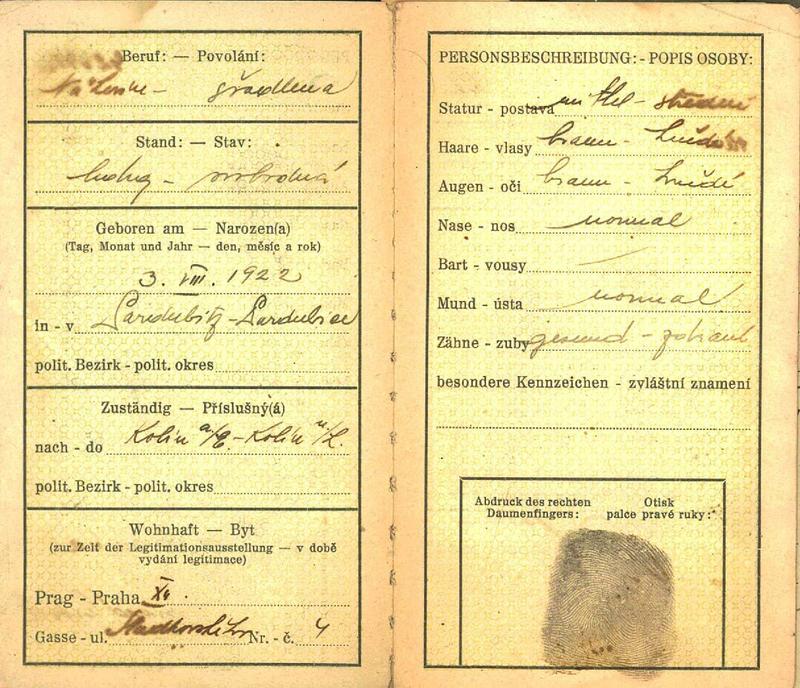 Beruf: — Povolání:
švadlena
Stand: — Stav:
ledig - svobodná
Geboren am — Narozen(a)
(Tag, Monat und Jahr — den, měsíc a rok)
3. VIII. 1922
in - v Pardubitz - Pardubice
polit. Bezirk - polit. okres
Zuständig — Příslušný(á)
nach - do Kolin a/E - Kolín n/L.
polit. Bezirk - polit. okres
Wohnhaft — Byt
(zur Zeit der Legitimationsausstellung — v době
vydání legitimace)
Prag - Praha
Gasse - ul. Nr. - č. 4
PERSONSBESCHREIBUNG: - POPIS OSOBY:
Statur - postava mittel - střední
Haare - vlasy braun - hnědé
Augen - oči braun - hnědé
Nase - nos normal
Bart - vousy
Mund - ústa normal
Zähne - zuby gesund - zdravé
besondere Kennzeichen - zvláštní znamení
Abdruck des rechten Otisk
Daumenfingers: palce pravé ruky: